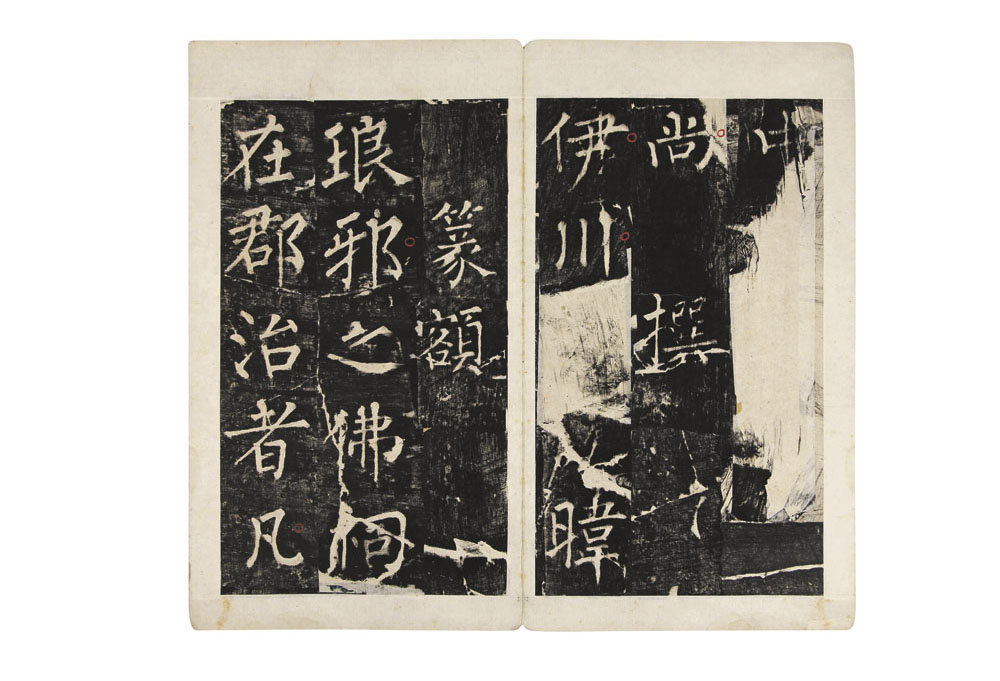 中
尚撰
伊川暐
篆額
琅邪之佛祠
在郡治者凡